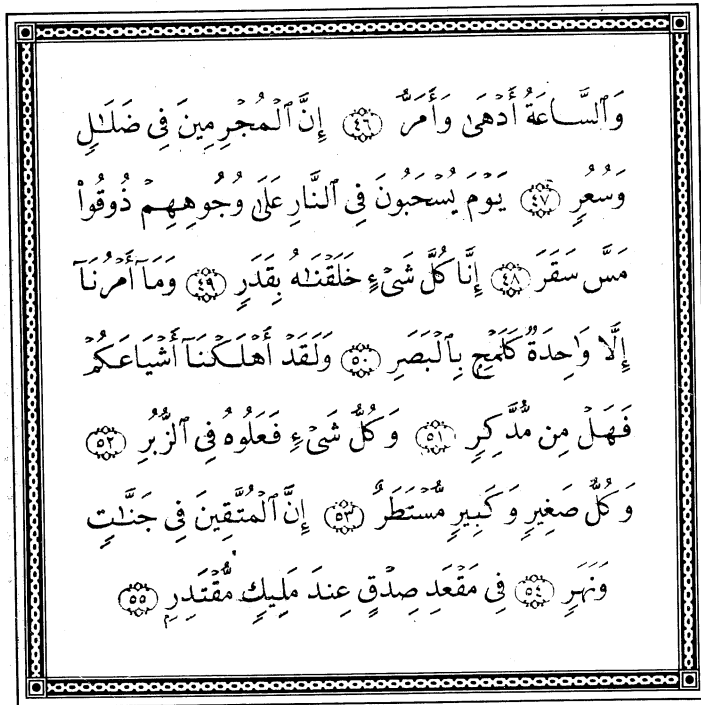 وَٱلسَّاعَةُ أَدْهَىٰ وَأَمَرُّ ﴿٤٦﴾ إِنَّ ٱلْمُجْرِمِينَ فِى ضَلَـٰلٍ
وَسُعُرٍ ﴿٤٧﴾ يَوْمَ يُسْحَبُونَ فِى ٱلنَّارِ عَلَىٰ وُجُوهِهِمْ ذُوقُوا۟
مَسَّ سَقَرَ ﴿٤٨﴾ إِنَّا كُلَّ شَىْءٍ خَلَقْنَـٰهُ بِقَدَرٍ ﴿٤٩﴾ وَمَآ أَمْرُنَآ
إِلَّا وَٰحِدَةٌ كَلَمْحٍۭ بِٱلْبَصَرِ ﴿٥٠﴾ وَلَقَدْ أَهْلَكْنَآ أَشْيَاعَكُمْ
فَهَلْ مِن مُّدَّكِرٍ ﴿٥١﴾ وَكُلُّ شَىْءٍ فَعَلُوهُ فِى ٱلزُّبُرِ ﴿٥٢﴾
وَكُلُّ صَغِيرٍ وَكَبِيرٍ مُّسْتَطَرٌ ﴿٥٣﴾ إِنَّ ٱلْمُتَّقِينَ فِى جَنَّـٰتٍ
وَنَهَرٍ ﴿٥٤﴾ فِى مَقْعَدِ صِدْقٍ عِندَ مَلِيكٍ مُّقْتَدِرٍۭ ﴿٥٥﴾